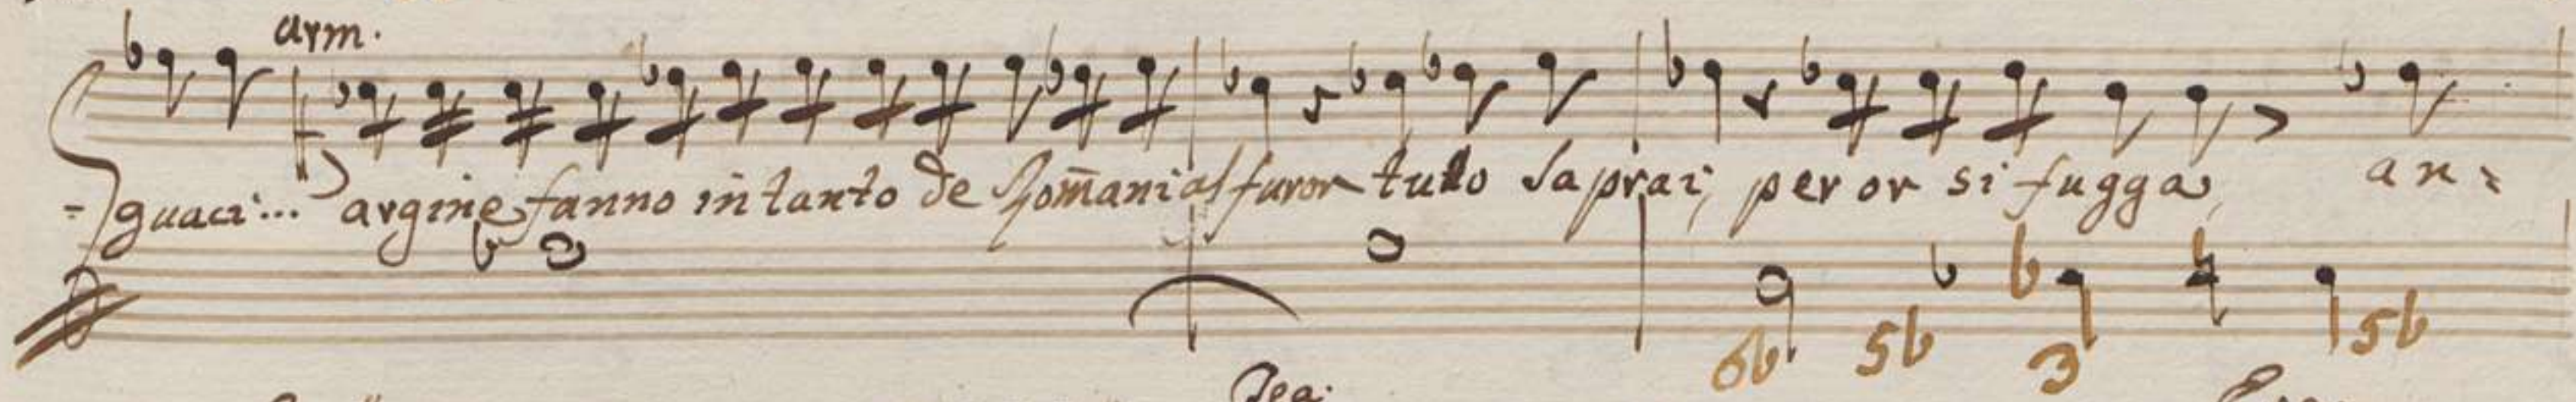 arm.
-guaci... argine fanno in tanto de Rom̄ani al furor tutto saprai, per or si fugga, an=
6b 5b b 3 5b